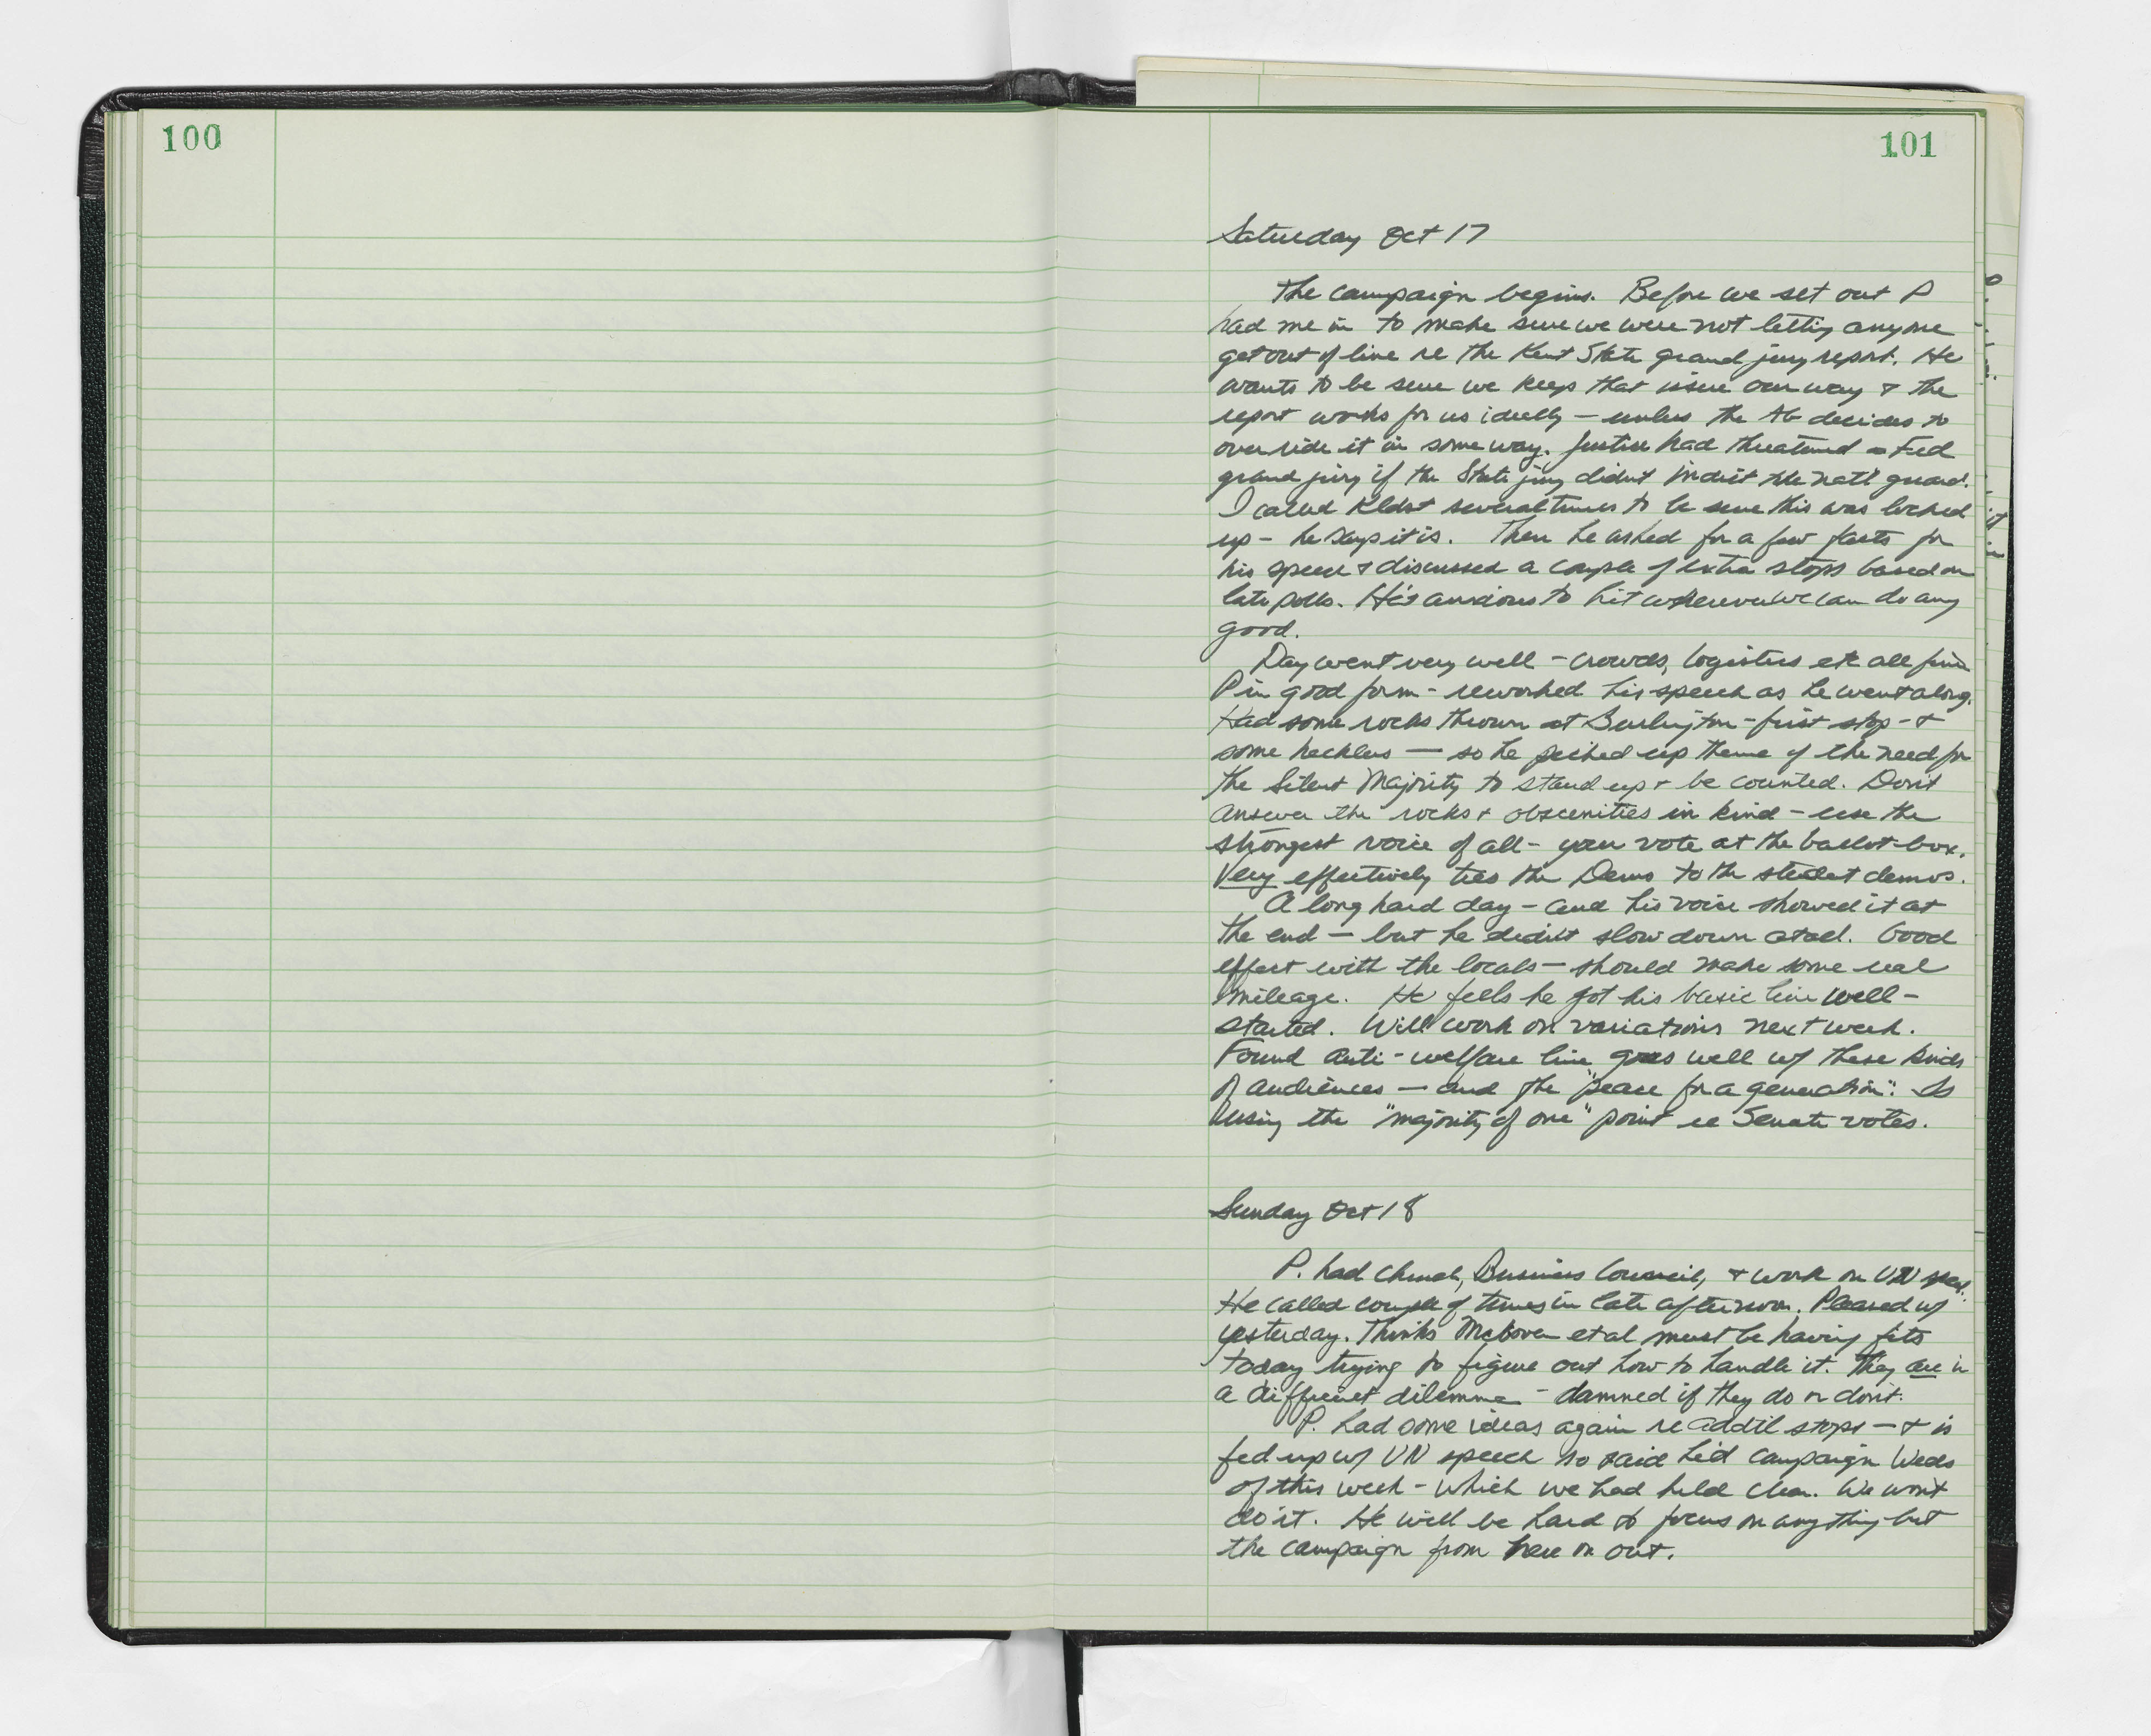 100
101
Saturday Oct 17
The campaign begins. Before we set out P
had me in to make sure we were not letting anyone
get out of line re the Kent State grand jury report. He
wants to be sure we keep that issue our way & the
report works for us ideally – unless the AG decides to
over ride it in some way. Justice had threatened a Fed
grand jury if the State jury didn't indict the natl guard.
I called Kldst several times to be sure this was locked
up – he says it is. Then he asked for a few facts for
his speech & discussed a couple of extra stops based on
late polls. He's anxious to hit wherever we can do any
good.
Day went very well – crowds, logistics etc all fine
P in good form – reworked his speech as he went along.
Had some rocks thrown at Burlington – first stop – &
some hecklers — so he picked up theme of the need for
the Silent Majority to stand up & be counted. Don't
answer the rocks & obscenities in kind – use the
strongest voice of all – your vote at the ballot-box.
Very effectively ties the Dems to the student demos.
A long hard day – and his voice showed it at
the end — but he didn't slow down at all. Good
effect with the locals — should make some real
mileage. He feels he got his basic line well –
started. Will work on variations next week.
Found anti-welfare line goes well w/ these kinds
of audiences — and the "peace for a generation". Is
using the "majority of one" point re Senate votes.
Sunday Oct 18
P. had church, Business Council, & work on UN speech.
He called couple of times in late afternoon. Pleased w/
yesterday. Thinks McGovern et al must be having fits
today trying to figure out how to handle it. They are in
a difficult dilemma – damned if they do or don't.
P. had some ideas again re addtl stops — & is
fed up w/ UN speech so said he'd campaign Weds
of this week – which we had held clear. We won't
do it. He will be hard to focus on anything but
the campaign from here on out.